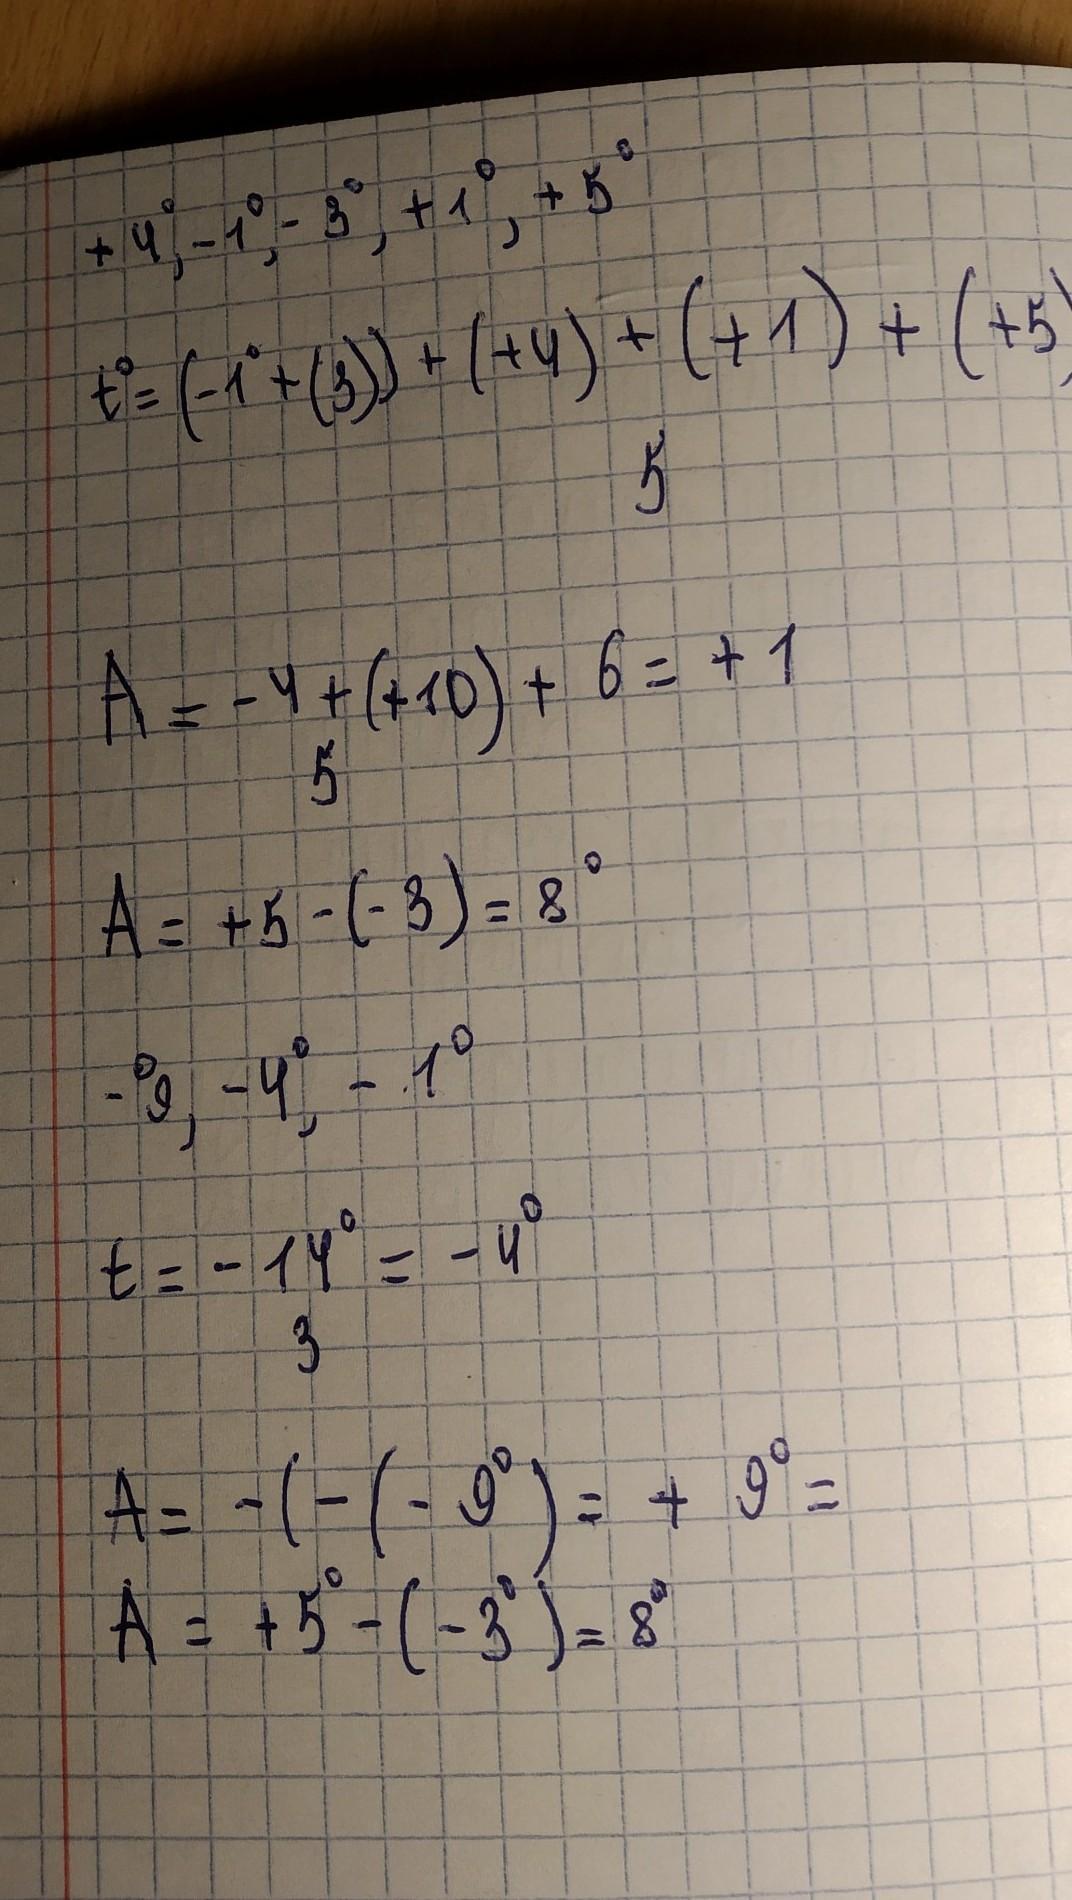 +4°, -1°, -3°, +1°, +5°
t° = (-1° + (3)) + (+4) + (+1) + (+5)
5
A = -4 + (+10) + 6 = +1
5
A = +5 - (-3) = 8°
-°9, -4°, -1°
t = -14° = -4°
3
A = -(-(-9°) = +9° =
A = +5° - (-3°) = 8°